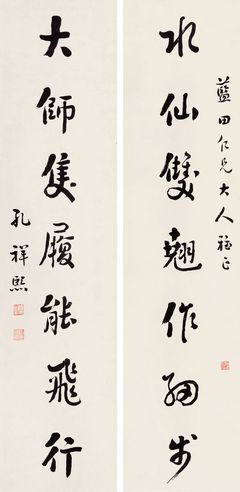 藍田仁兄大人雅正
水仙雙翹作細步
大師隻履能飛行
孔祥熙